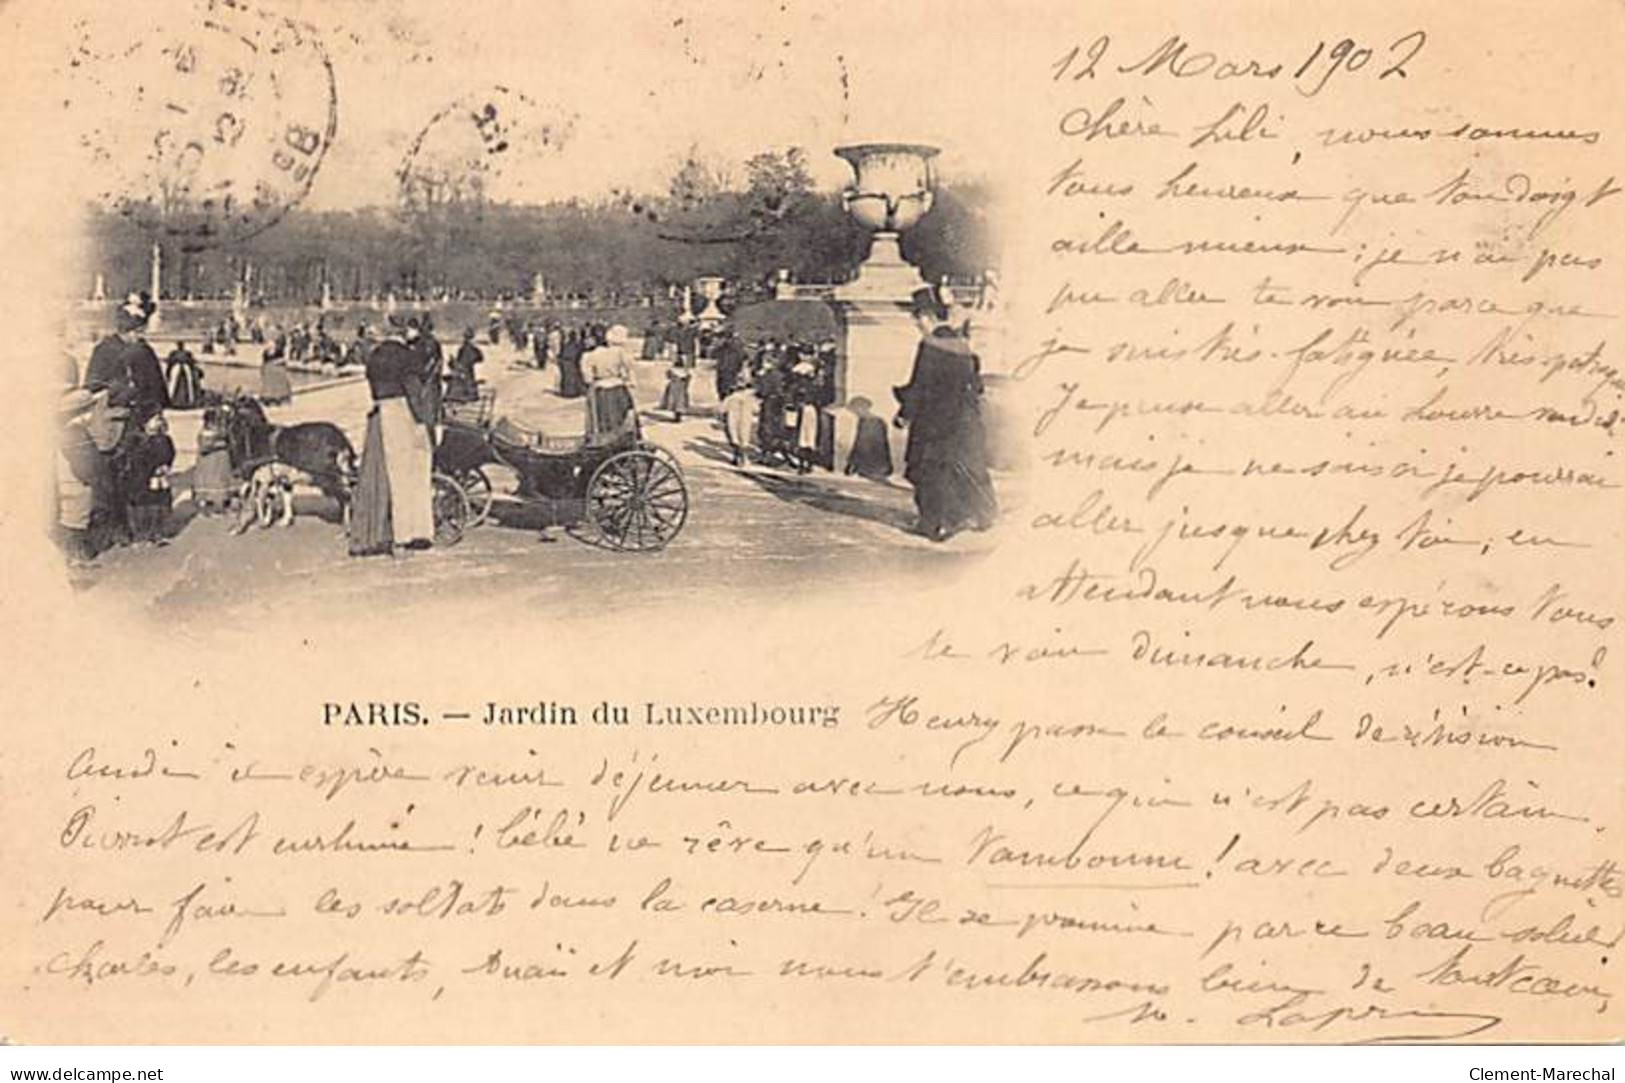 12 Mars 1902
Chère Lili, nous sommes
tous heureux que ton doigt
aille mieux ; je n'ai pas
pu aller te voir parce que
je suis très fatiguée, très
Je pense aller au Louvre
mais je ne sais si je pourrai
aller jusque chez toi, en
attendant nous espérons tous
te voir Dimanche, n'est-ce pas?
PARIS. — Jardin du Luxembourg
Henry passe le conseil de révision
Lundi il espère venir déjeuner avec nous, ce qui n'est pas certain.
Pierrot est enrhumé ! bébé ne rêve qu'un tambour ! avec deux baguettes
pour faire les soldats dans la caserne ! Il se promène par ce beau soleil
Charles, les enfants, et moi nous t'embrassons bien de tout cœur,
delcampe.net
Clement-Marechal